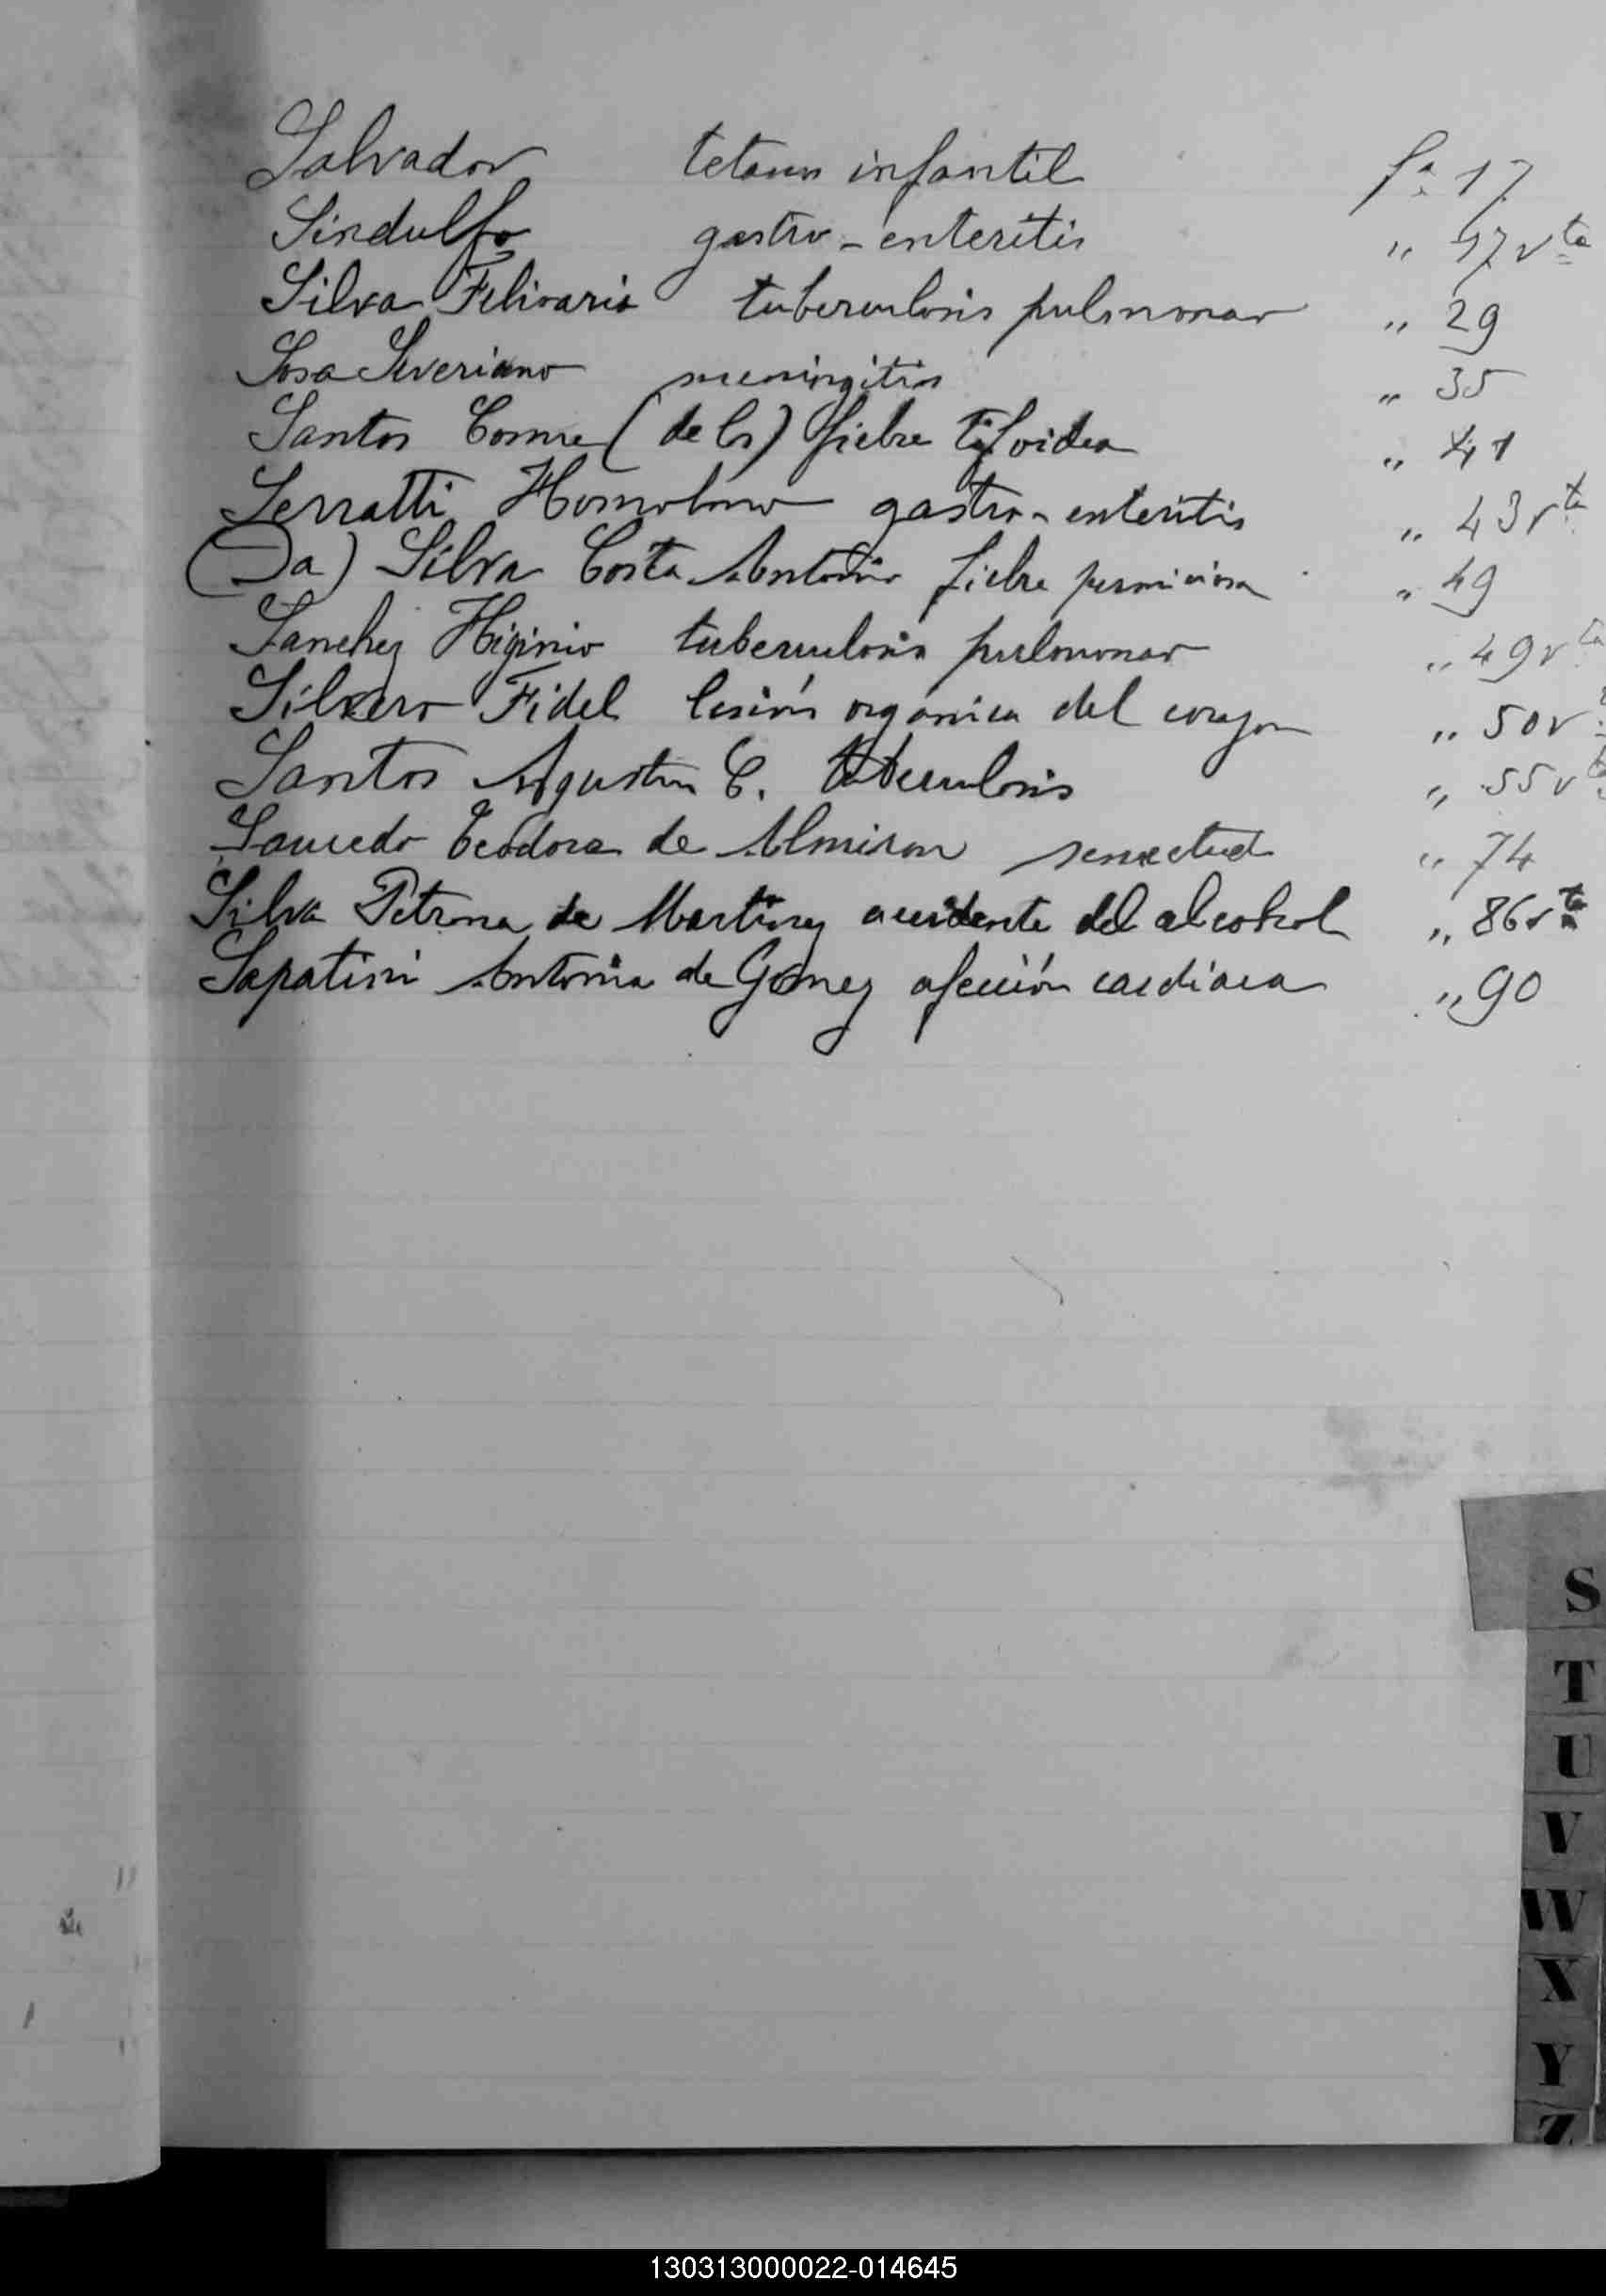 Salvador tetano infantil fs. 17
Sindulfo gastro-enteritis " 17 vta
Silva Felisaria tuberculosis pulmonar " 29
Sosa Severiano meningitis " 35
Santos Cosme (de los) fiebre tifoidea " 41
Serratti Homobono gastro-enteritis " 43 vta
(Da) Silva Costa Antonio fiebre perniciosa " 49
Sanchez Higinio tuberculosis pulmonar " 49 vta
Silvero Fidel lesión organica del corazon " 50 v
Santos Agustin C. tuberculosis " 55 vta
Saucedo Teodora de Almiron senectud " 74
Silva Petrona de Martinez accidente del alcohol " 86 vta
Sapatini Antonia de Gomez afección cardiaca " 90
S
T
U
V
W
X
Y
Z
130313000022-014645